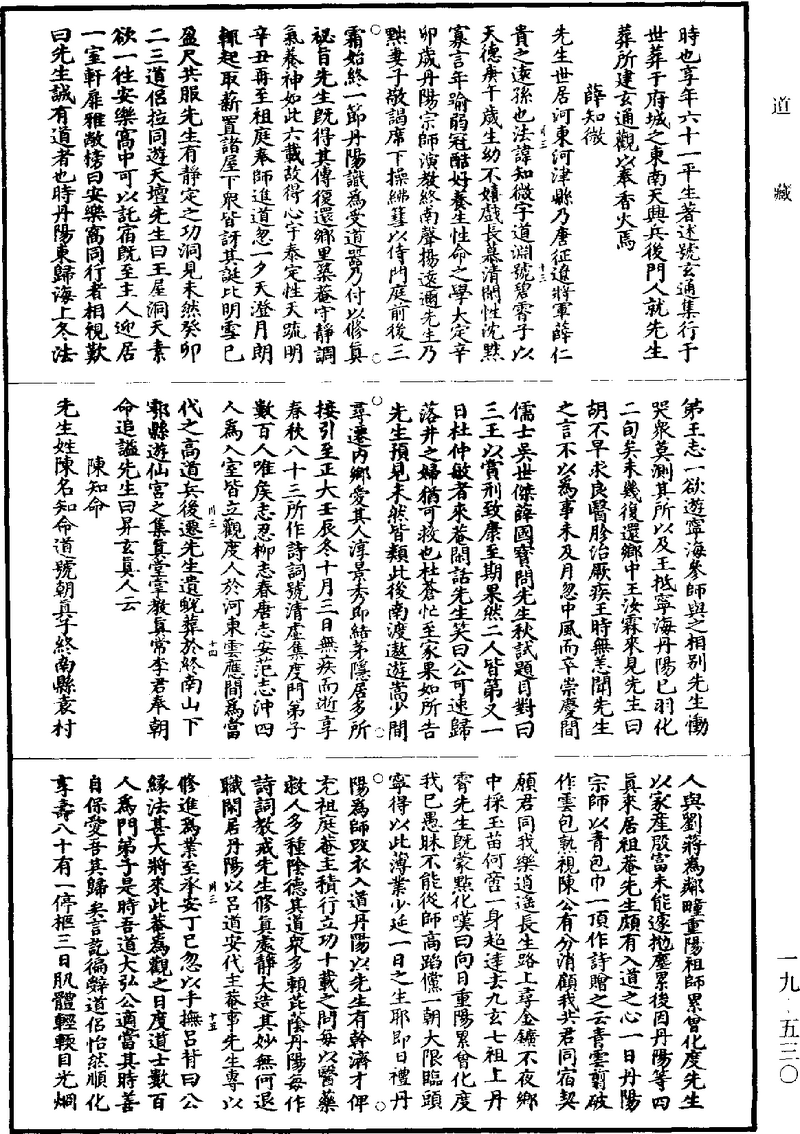 道藏
時也享年六十一平生著述號玄通集行于
世葬于府城之東南天興兵後門人就先生
葬所建玄通觀以奉香火焉
薛知微
先生世居河東河津縣乃唐征遼將軍薛仁
貴之遠孫也法諱知微字道淵號碧霄子以
天德庚午歲生幼不嬉戲長慕清閑性沈默
寡言年踰弱冠酷好養生性命之學大定辛
卯歲丹陽宗師演教終南聲揚遠邇先生乃
黜妻子敬謁席下操紼篲以侍門庭前後三
霜始終一節丹陽識為受道器乃付以修真
祕旨先生既得其傳復還鄉里築菴守靜調
氣養神如此六載故得心宇泰定性天疏明
辛丑再至祖庭奉師進道忽一夕天澄月朗
輒起取薪置諸屋下眾皆訝其誕比明雪已
盈尺共服先生有靜定之功洞見未然癸卯
二三道侶拉同遊天壇先生曰王屋洞天素
欲一往安樂窩中可以託宿既至主人迎居
一室軒扉雅敞牓曰安樂窩同行者相視歎
曰先生誠有道者也時丹陽東歸海上冬法
第王志一欲遊寧海參師與之相別先生慟
哭眾莫測其所以及王抵寧海丹陽已羽化
二旬矣未幾復還鄉中王汝霖來見先生曰
胡不早求良醫胗治厥疾王時無恙聞先生
之言不以為事未及月忽中風而卒崇慶間
儒士吳世傑薛國寶問先生秋試題目對曰
三王以賞刑致康至期果然二人皆第又一
日杜仲敏者來菴閑話先生笑曰公可速歸
落井之婦猶可救也杜蒼忙至家果如所告
先生預見未然皆類此後南渡遨遊嵩少間
尋遷內鄉愛其人淳景秀即結茅隱居多所
接引至正大壬辰冬十月三日無疾而逝享
春秋八十三所作詩詞號清虛集度門弟子
數百人唯矦志忍柳志春唐志安范志沖四
人為入室皆立觀度人於河東雲應間為當
代之高道兵後遷先生遺蛻葬於終南山下
鄠縣遊仙宮之集真堂掌教真常李君奉朝
命追謚先生曰昇玄真人云
陳知命
先生姓陳名知命道號朝真子終南縣袁村
人與劉蔣為鄰疃重陽祖師累曾化度先生
以家產殷富未能遽拋塵累後因丹陽等四
真來居祖菴先生頗有入道之心一日丹陽
宗師以青包巾一頂作詩贈之云青雲剪破
作雲包熟視陳公有分消顧我共君同宿契
願君同我樂逍遙長生路上尋金鑛不夜鄉
中採玉苗何啻一身超達去九玄七祖上丹
霄先生既蒙點化嘆曰向日重陽累曾化度
我已愚昧不能從師高蹈儻一朝大限臨頭
寧得以此薄業少延一日之生耶即日禮丹
陽為師改衣入道丹陽以先生有幹濟才俾
充祖庭菴主積行立功十載之間每以醫藥
救人多種陰德其道眾多賴芘蔭丹陽每作
詩詞教戒先生修真處靜大造其妙無何退
職閑居丹陽以呂道安代主菴事先生專以
修進為業至承安丁巳忽以手撫呂背曰公
緣法甚大將來此菴為觀之日度道士數百
人為門弟子是時吾道大弘公適當其時善
自保愛吾其歸矣言訖徧辭道侶怡然順化
享壽八十有一停柩三日肌體輕軟目光烱
一九-五三〇